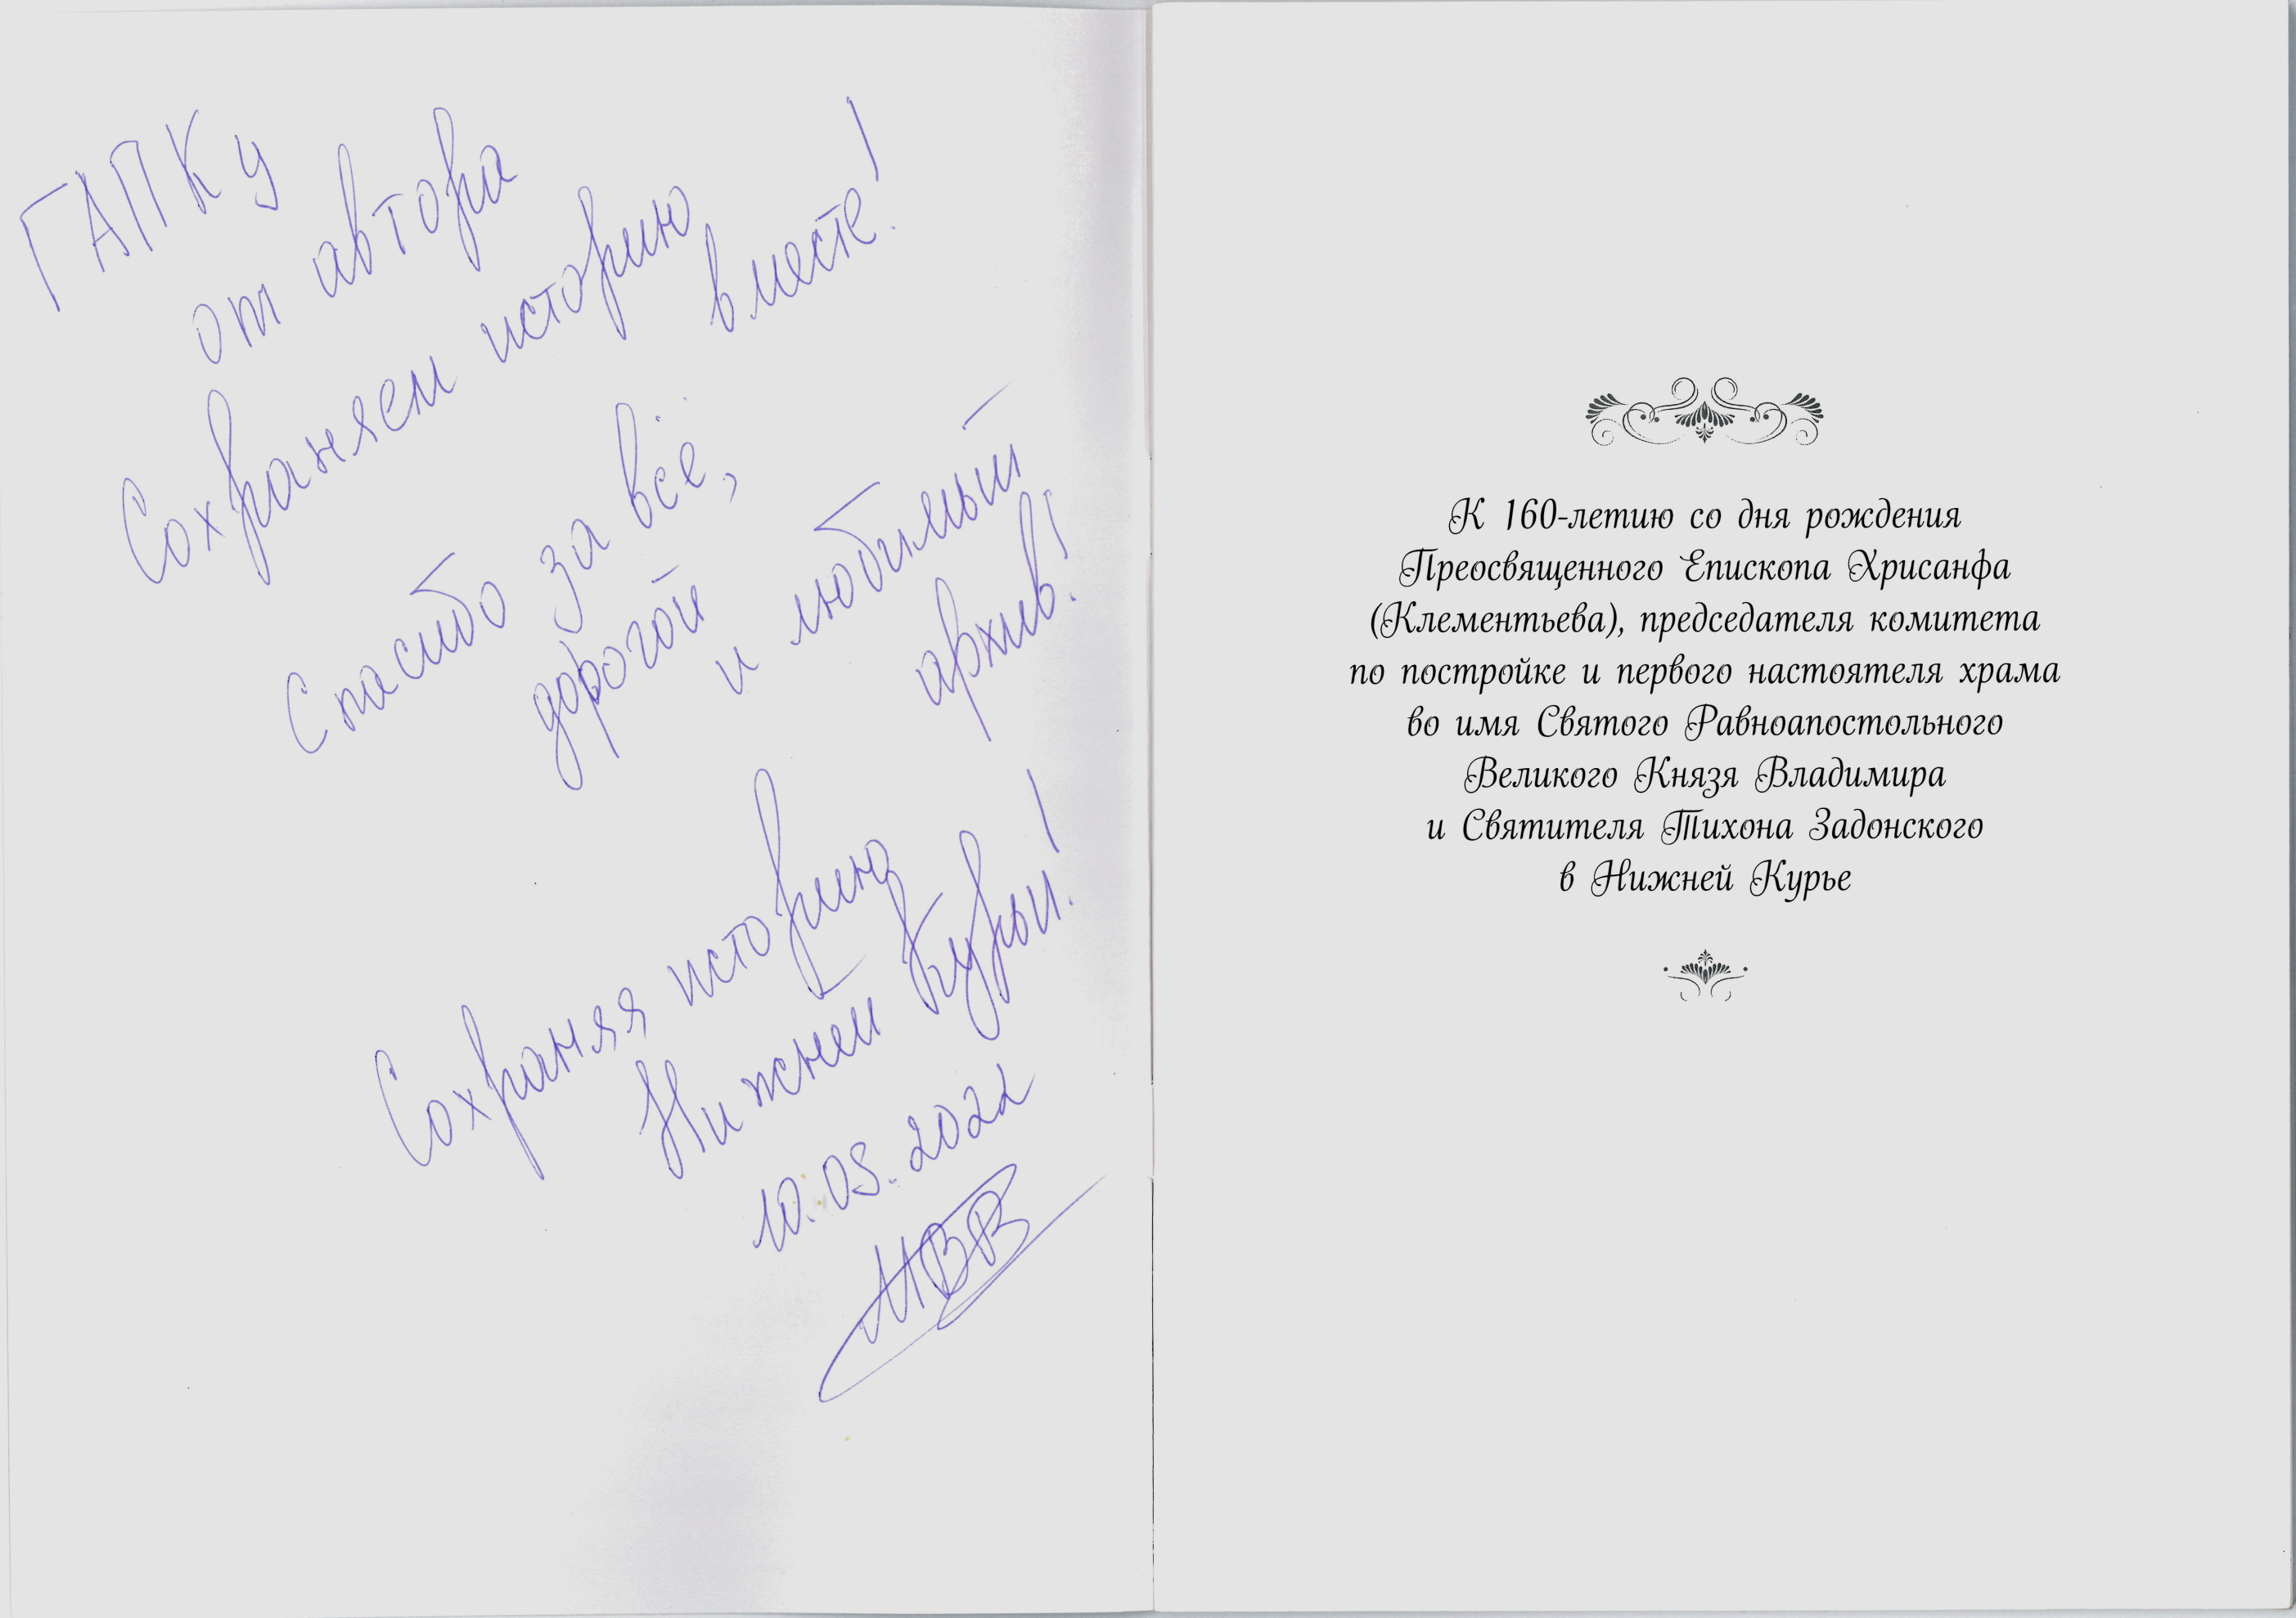 ГАПКу
от автора
Сохраняем историю
вместе!
Спасибо за всё,
дорогой
и любимый
архив!
Сохраняя историю
Нижней Курьи!
10.05.2022
МВВ
К 160-летию со дня рождения
Преосвященного Епископа Хрисанфа
(Клементьева), председателя комитета
по постройке и первого настоятеля храма
во имя Святого Равноапостольного
Великого Князя Владимира
и Святителя Тихона Задонского
в Нижней Курье